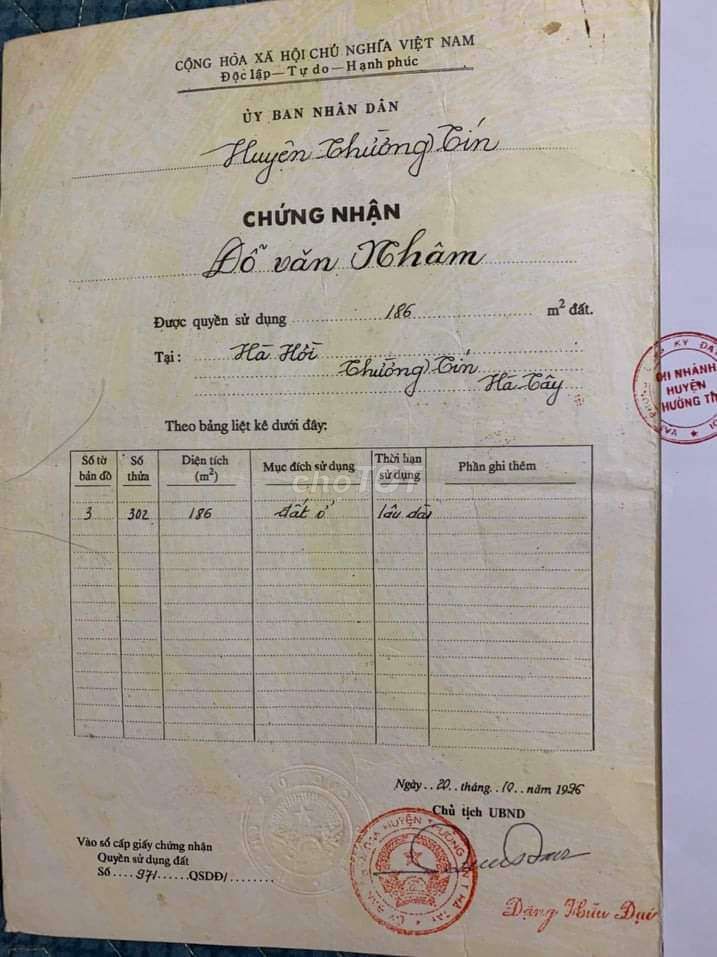 CỘNG HÒA XÃ HỘI CHỦ NGHĨA VIỆT NAM
Độc lập—Tự do—Hạnh phúc
ỦY BAN NHÂN DÂN
Huyện Thường Tín
CHỨNG NHẬN
Đỗ văn Nhâm
Được quyền sử dụng 186 m² đất.
Tại: Hà Hồi
Thường Tín
Hà Tây
Theo bảng liệt kê dưới đây:
Số tờ bản đồ Số thửa Diện tích (m²) Mục đích sử dụng Thời hạn sử dụng Phần ghi thêm
3 302 186 đất ở lâu dài
choTOT
Ngày 20 tháng 10 năm 1996
Chủ tịch UBND
Vào sổ cấp giấy chứng nhận
Quyền sử dụng đất
Số 971 QSDĐ/
Đặng Hữu Đại
CHI NHÁNH
HUYỆN
THƯỜNG TÍ